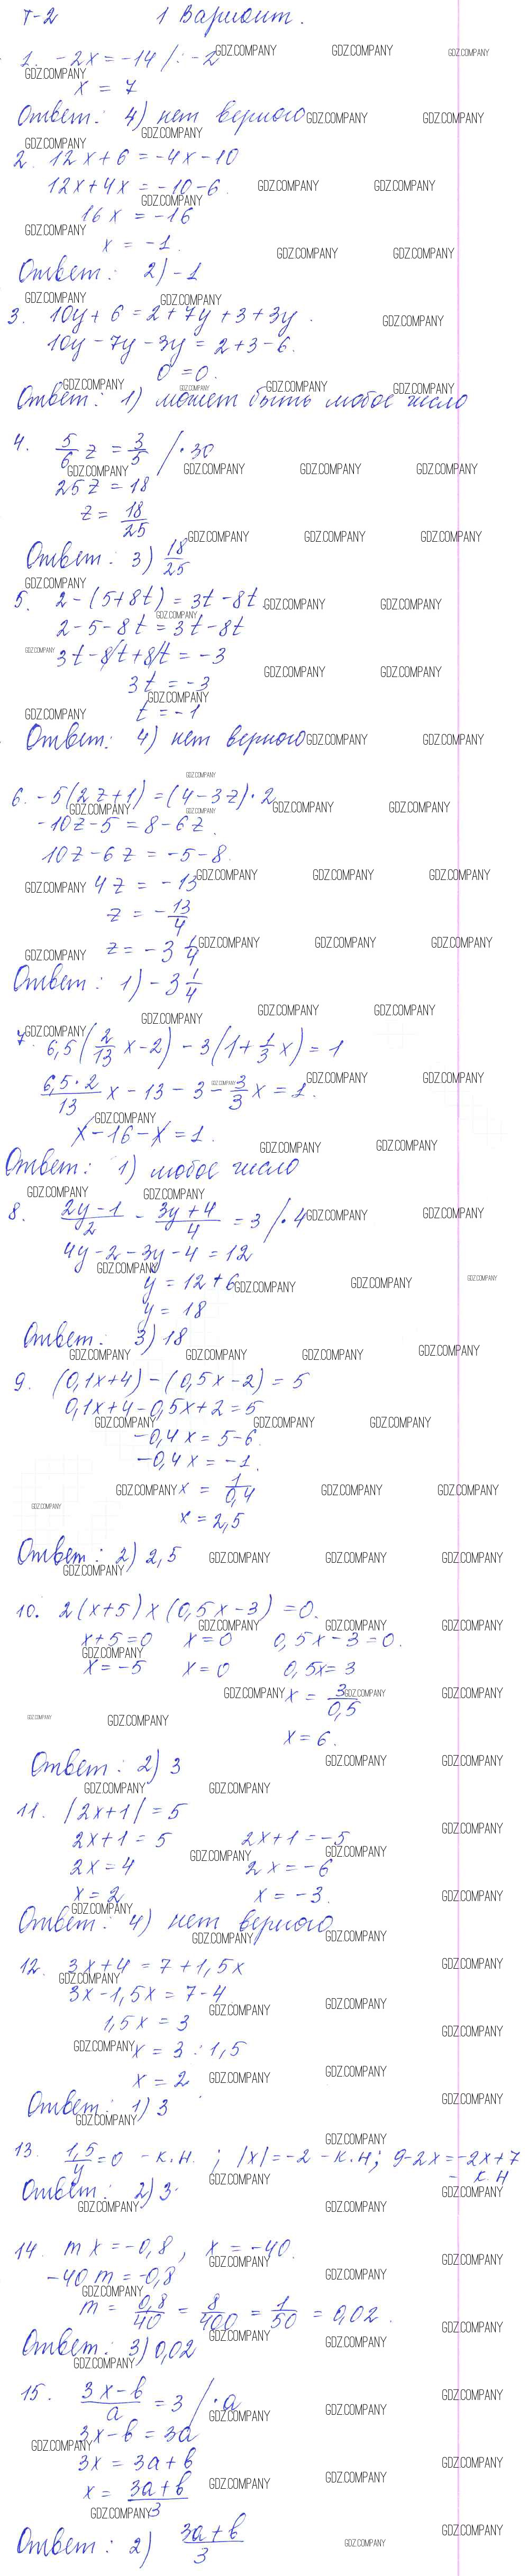 Т-2 1 Вариант.
1. -2x = -14 /: -2
x = 7
Ответ: 4) нет верного
2. 12x+6 = -4x-10
12x+4x = -10-6.
16x = -16
x = -1.
Ответ: 2) -1
3. 10y + 6 = 2+7y+3+3y.
10y-7y-3y = 2+3-6.
0 = 0.
Ответ: 1) может быть любое число
4. 5/6 z = 3/5 / · 30
25z = 18
z = 18/25
Ответ: 3) 18/25
5. 2-(5+8t) = 3t-8t.
2-5-8t = 3t-8t
3t-8t+8t = -3
3t = -3
t = -1
Ответ: 4) нет верного
6. -5(2z+1) = (4-3z)·2
-10z-5 = 8-6z.
10z-6z = -5-8.
4z = -13
z = -13/4
z = -3 1/4
Ответ: 1) -3 1/4
7. 6,5(2/13 x-2) - 3(1+1/3 x) = 1
6,5·2/13 x - 13 - 3 - 3/3 x = 1.
x-16-x = 1.
Ответ: 1) любое число
8. 2y-1/2 - 3y+4/4 = 3 / · 4
4y-2-3y-4 = 12
y = 12+6
y = 18
Ответ: 3) 18
9. (0,1x+4) - (0,5x-2) = 5
0,1x+4-0,5x+2 = 5
-0,4x = 5-6.
-0,4x = -1.
x = 1/0,4
x = 2,5
Ответ: 2) 2,5
10. 2(x+5) x (0,5x-3) = 0.
x+5=0 x=0 0,5x-3=0.
x=-5 x=0 0,5x=3
x = 3/0,5
x = 6.
Ответ: 2) 3
11. |2x+1| = 5
2x+1 = 5 2x+1 = -5
2x = 4 2x = -6
x = 2 x = -3.
Ответ: 4) нет верного
12. 3x+4 = 7+1,5x
3x-1,5x = 7-4
1,5x = 3
x = 3 : 1,5
x = 2
Ответ: 1) 3
13. 1,5/y = 0 - к.н. ; |x| = -2 - к.н; 9-2x = -2x+7
- к.н
Ответ: 2) 3
14. mx = -0,8, x = -40.
-40m = -0,8
m = 0,8/40 = 8/400 = 1/50 = 0,02.
Ответ: 3) 0,02
15. 3x-b/a = 3 / · a
3x-b = 3a
3x = 3a+b
x = 3a+b/3
Ответ: 2) 3a+b/3
GDZ.COMPANY